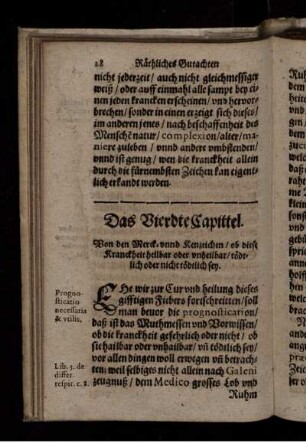 28 Räthliches Gutachten
nicht jederzeit / auch nicht gleichmessiger
weiß / oder auff einmahl alle sampt bey ei-
nen jeden krancken erscheinen / vnd hervor-
brechen / sonder in einen erzeigt sich dieses /
im anderen jenes / nach beschaffenheit des
Menschē natur / complexion / alter / ma-
niere zuleben / vnnd andere vmbstenden /
vnnd ist genug / wen die kranckheit allein
durch die fürnembsten Zeichen kan eigent-
lich erkandt werden.
Das Vierdte Capittel.
Von den Merck- vnnd Kenzeichen / ob diese
Kranckheit heilbar oder vnheilbar / tödt-
lich oder nicht tödtlich sey.
Progno-
sticatio
necessaria
& vtilis.
EHe wir zur Cur vnd heilung dieses
gifftigen Fiebers fortschreitten / soll
man beuor die prognostication,
daß ist das Muthmessen vnd Vorwissen /
ob die kranckheit gefehrlich oder nicht / ob
sie hailbar oder vnhailbar / vñ tödtlich sey /
vor allen dingen woll erwegen vñ betrach-
ten: weil selbiges nicht allein nach Galeni
Lib. 3. de
differ.
respir. c. 8.
zeugnuß / dem Medico grosses Lob vnd
Ruhm